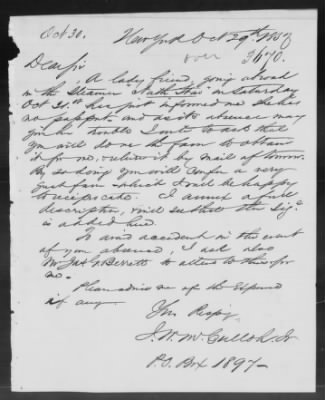 Oct 30.
New York Oct 29th 1857
over 3670.
Dear Sir
A lady friend, going abroad
in the Steamer North Star on Saturday
Oct 31st has just informed me she has
no passport, and as its absence may
give her trouble I write to ask that
you will do me the favor to obtain
it for me, & return it by mail of tomorrow.
By so doing you will confer a very
great favor which I will be happy
to reciprocate. I annex a full
description, & will see that the sig.
is added here.
To avoid accident in the event
of your absence, I ask also
Mr Jas to attend to this for
me.
Please advise me of the expense
if any
Yrs Respy
J. W. McCulloh Jr
P.O. Box 1897